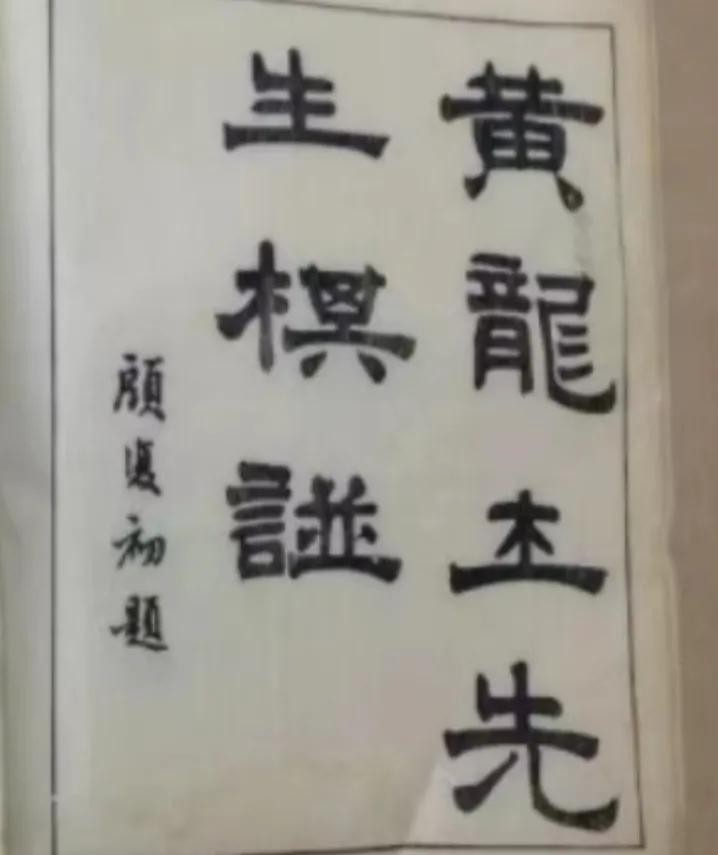 黃龍士先
生棋譜
顧復初題